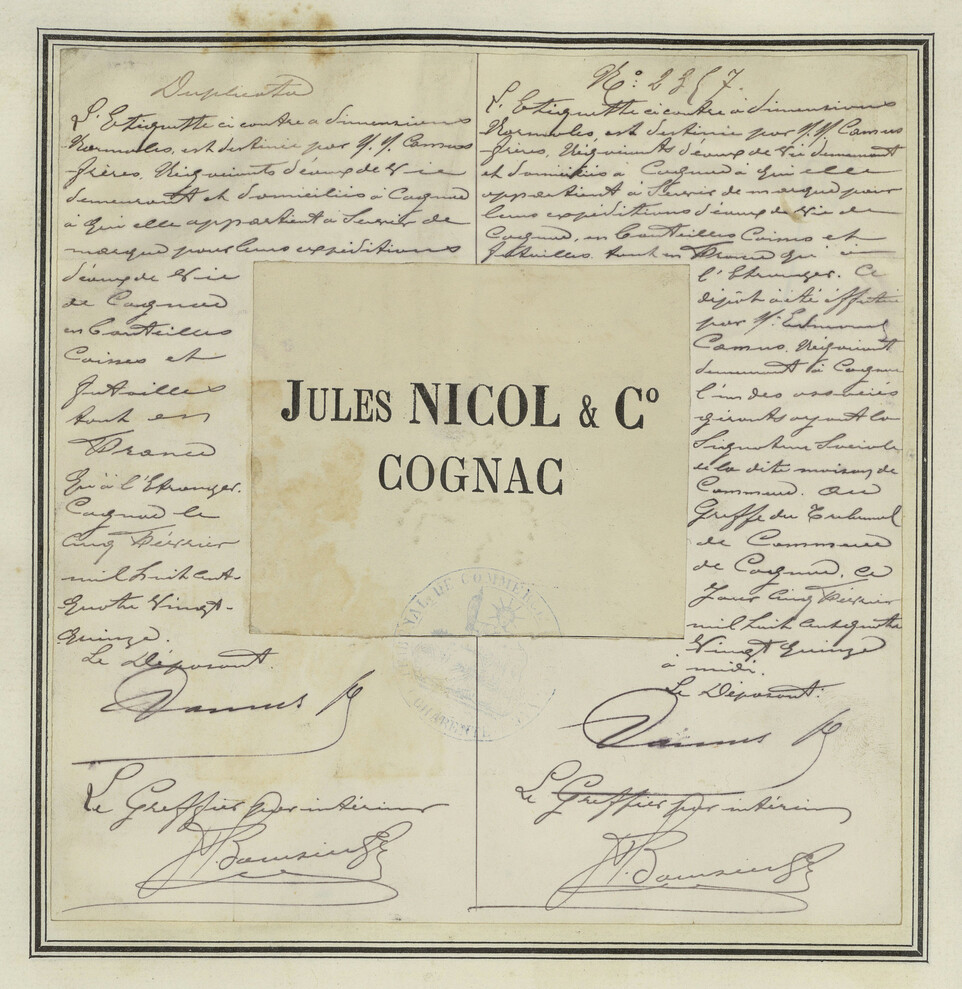 Duplicata
L'Etiquette ci contre a dimensions
Normales, est destinée par M.M. Camus
frères, Négociants d'eaux de Vie
demeurant et domiciliés à Cognac
à qui elle appartient à Servir de
marque pour leurs expéditions
d'eaux de Vie
de Cognac
en bouteilles
Caisses et
futailles
tant en
France
qu'à l'Etranger.
Cognac le
cinq Février
mil huit cent
quatre Vingt-
quinze.
Le Déposant.
Camus
Le Greffier par intérim
N°: 2357.
L'Etiquette ci contre à dimensions
Normales, est destinée par M.M. Camus
frères, Négociants d'eaux de Vie demeurant
et domiciliés à Cognac à qui elle
appartient à Servir de marque pour
leurs expéditions d'eaux de Vie de
Cognac, en bouteilles Caisses et
futailles tant en France qu'à
l'Etranger. Ce
dépôt a été effectué
par M. Edmond
Camus, Négociant
demeurant à Cognac
l'un des associés
gérants ayant la
Signature Sociale
de la dite maison de
Commerce. au
Greffe du Tribunal
de Commerce
de Cognac, ce
Jour cinq Février
mil huit cent quatre
Vingt quinze
à midi.
Le Déposant.
Camus
Le Greffier par intérim
JULES NICOL & Cº
COGNAC
TRIBUNAL DE COMMERCE